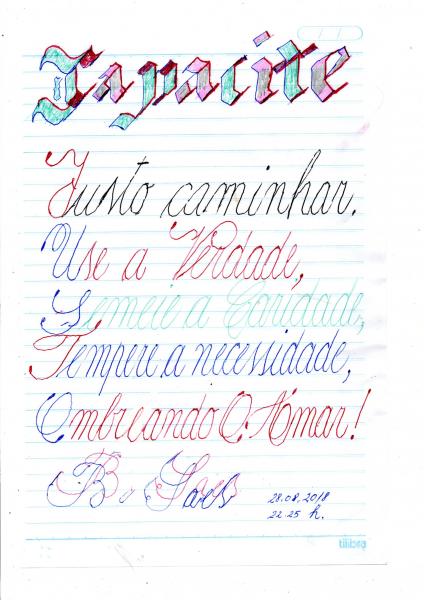 Capacite
Justo caminhar.
Use a Verdade,
Semeie a Caridade,
Tempere a necessidade,
Ombreando O Amar!
B.
28.08.2018
22:25 h.
tilibra